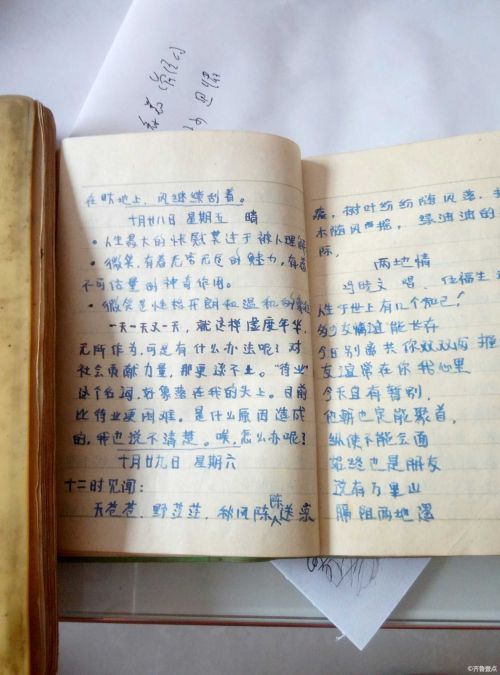 在旷地上，风继续刮着。
十月廿八日 星期五 晴
·人生最大的快慰莫过于被人理解
·微笑，有着无穷无尽的魅力，有着
不可估量的神奇作用。
·微笑是性格开朗和温和的
一天一天又一天，就这样虚度年华，
无所作为，可是有什么办法呢？对
社会贡献力量，那更谈不上。“待业”
这个名词，好象落在我的头上。目前
比待业更困难。是什么原因造成
的，我也说不清楚。唉，怎么办呢？
十月廿九日 星期六
十二时见闻：
天苍苍，野茫茫，秋风陈陈送来
树叶纷纷随风落，
木随风声摇，绿油油的
际，
两地情
唱
人生于世上有几个知己？
多少友情谊能长存
今日别离共你双双握
友谊常在你我心里
今天且有暂别，
他朝也定能聚首，
纵使不能会面
始终也是朋友
说有万里山
隔阻两地遥
©齐鲁壹点